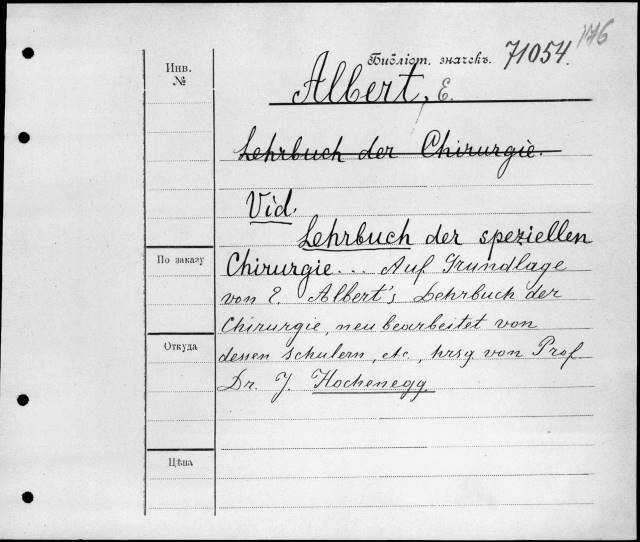 176
Инв. №
Библіот. значекъ. 71054.
Albert, E.
Lehrbuch der Chirurgie.
Vid.
Lehrbuch der speziellen
Chirurgie... Auf Grundlage
von E. Albert's Lehrbuch der
Chirurgie, neu bearbeitet von
dessen Schulern, etc., hrsg von Prof
Dr. J. Hochenegg.
По заказу
Откуда
Цѣна